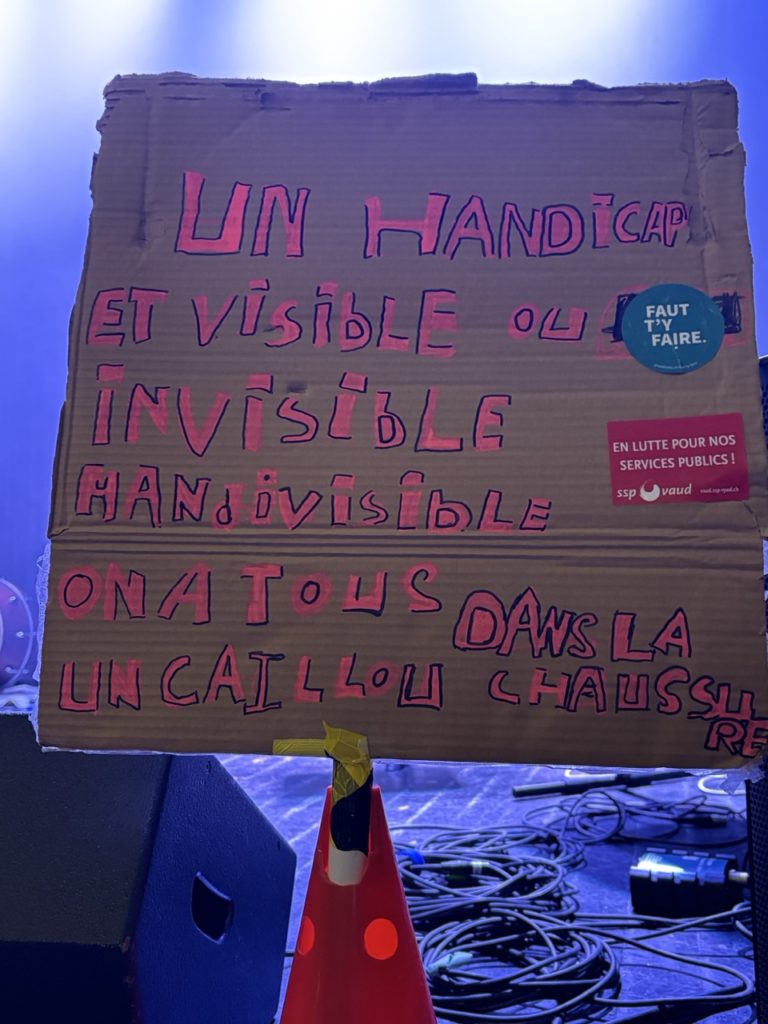 UN HANDICAP
ET VISIBLE OU
FAUT
T'Y
FAIRE.
INVISIBLE
EN LUTTE POUR NOS
SERVICES PUBLICS !
ssp vaud vaud.ssp-vpod.ch
HANdIVISIBLE
ON A TOUS DANS LA
UN CAILLOU CHAUSSURE